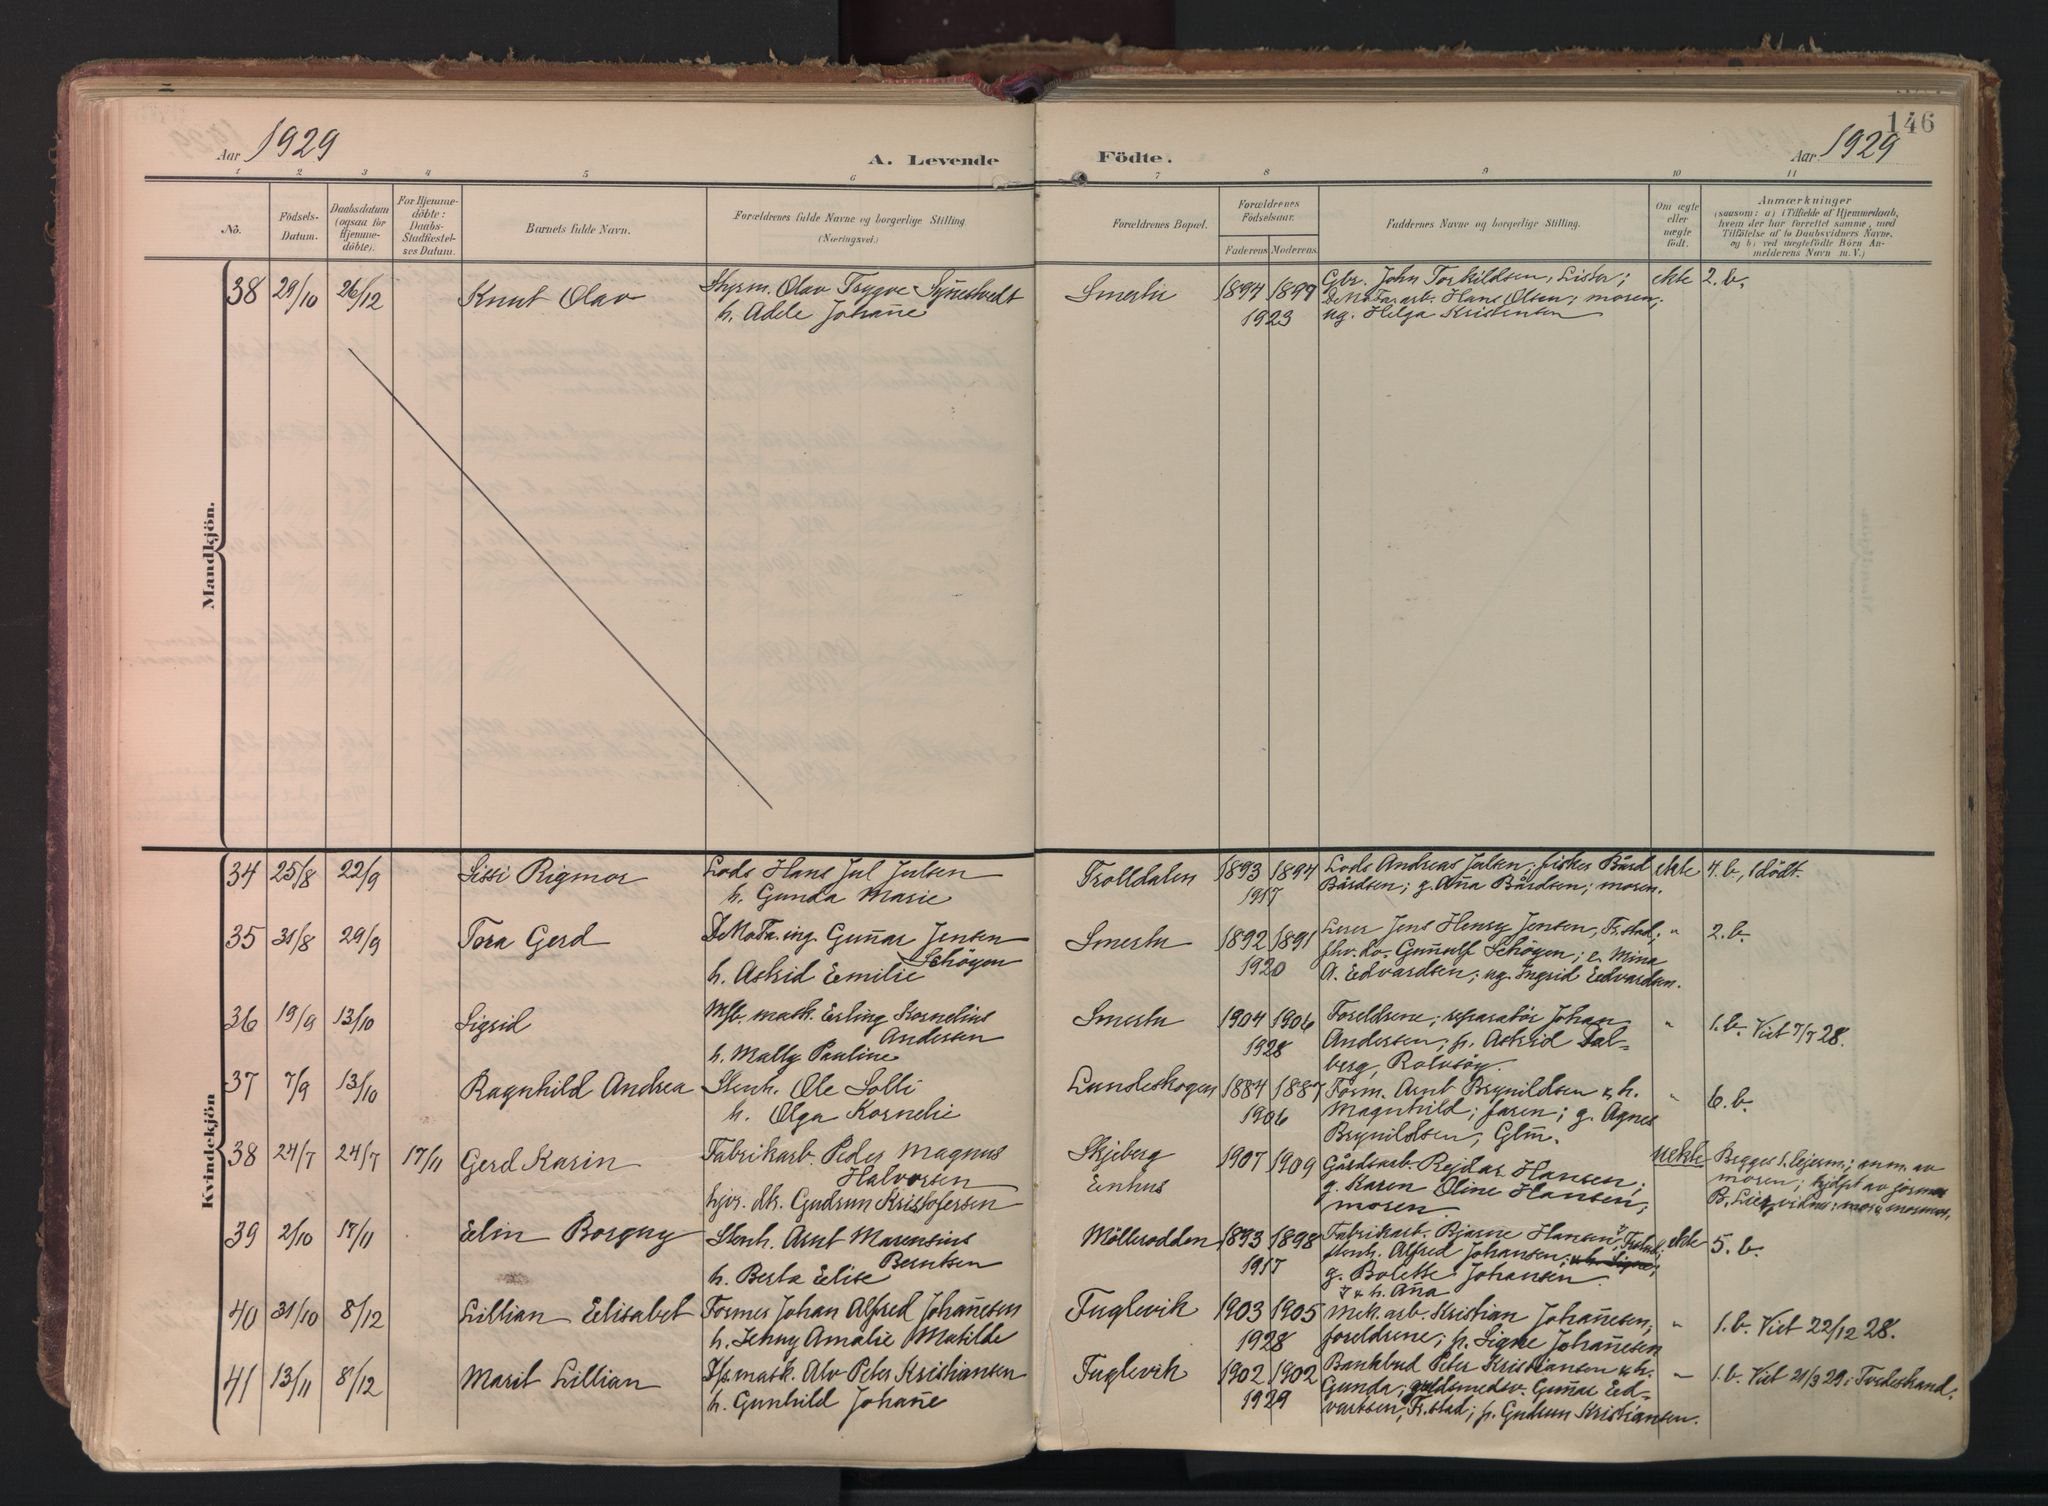 146
Aar 1929
A. Levende Födte.
Aar 1929
1 2 3 4 5 6 7 8 9 10 11
No.
Födsels-
Datum.
Daabsdatum
(ogsaa for
Hjemme-
döbte).
For Hjemme-
döbte:
Daabs-
Stadfæstel-
ses Datum.
Barnets fulde Navn.
Forældrenes fulde Navne og borgerlige Stilling
(Næringsvei.)
Forældrenes Bopæl.
Forældrenes
Födselsaar.
Faderens Moderens
Faddernes Navne og borgerlige Stilling.
Om ægte
eller
uægte
födt.
Anmærkninger
(saasom: a) i Tilfælde af Hjemmedaab,
hvem der har forrettet samme, med
Tilföielse af to Daabsvidners Navne,
og b) ved uægtefödte Börn An-
melderens Navn m. V.)
Mandkjön.
38 29/10 26/12 Knut Olav
Styrm. Olav Trygve Synestvedt
h. Adele Johañe
Smertu
1894 1899
1923
Gbr. John Torkildsen, Lister;
DeNoFa. arb. Hans Olsen; moren;
ug. Helga Kristensen
ekte 2. b.
Kvindekjön
34 25/8 22/9 Sissi Rigmor
Lods Hans Jul Julsen
h. Gunda Marie
Trolldalen
1893 1894
1917
Lods Andreas Julsen; fisker Bård
Bårdsen; g. Aña Bårdsen; moren.
ekte 4. b., 1 dödt.
35 31/8 29/9 Tora Gerd
DeNoFa. ing. Guñar Jensen
Schöyen
h. Astrid Emilie
Smertu
1892 1891
1920
Lærer Jens Henry Jensen, Fr.stad;
Guñulf Schöyen; e. Mina
A. Edvardsen; ug. Ingrid Edvardsen.
" 2. b.
36 19/9 13/10 Sigrid
Mfl. mask. Erling Kornelius
Andersen
h. Mally Pauline
Smertu
1904 1906
1928
Foreldrene; reparatör Johan
Andersen; p. Astrid Dal-
berg, Rolvsöy.
" 1. b. Viet 7/7 28.
37 7/9 13/10 Ragnhild Andrea
Stenh. Ole Solli
h. Olga Kornelie
Lundeskogen
1884 1887
1906
Form. Arnt Brynildsen & h.
Magnhild; faren; g. Agnes
Brynildsen, Glm.
" 6. b.
38 24/7 24/7 17/11 Gerd Karin
Fabrikarb. Peder Magnus
Halvorsen
hjv. dtr. Gudrun Kristofersen
Skjeberg
Enhus
1907 1909
Gårdsarb. Reidar Hansen;
g. Karen Oline Hansen;
moren.
uekte
Begges 1. lejerm.; anm. av
moren; hjdpt av jormor
B. Lie; vidner: mor & mormor.
39 2/10 17/11 Elin Borgny
Stenh. Arnt Marensius
Berntsen
h. Berta Elise
Mölleroddén
1893 1898
1917
Fabrikarb. Bjarne Hansen, Fr.stad;
stenh. Alfred Johansen; & h. Signe;
g. Bolette Johansen.
& h. Aña
ekte 5. b.
40 31/10 8/12 Lillian Elisabet
Former Johan Alfred Johañesen
h. Jenny Amalie Matilde
Fuglevik
1903 1905
1928
Mek. arb. Kristian Johañesen;
foreldrene; p. Signe Johañesen
" 1. b. Viet 22/12 28.
41 13/11 8/12 Marit Lillian
D/s mask. Alv Peter Kristiansen
h. Gunhild Johañe
Fuglevik
1902 1902
1929
Bankbud Peter Kristiansen & h.
Gunda; guldsmedsv. Guñar Ed-
vartsen, Fr.stad; p. Gudrun Kristiansen.
" 1. b. Viet 21/3 29 i Tvedestrand.